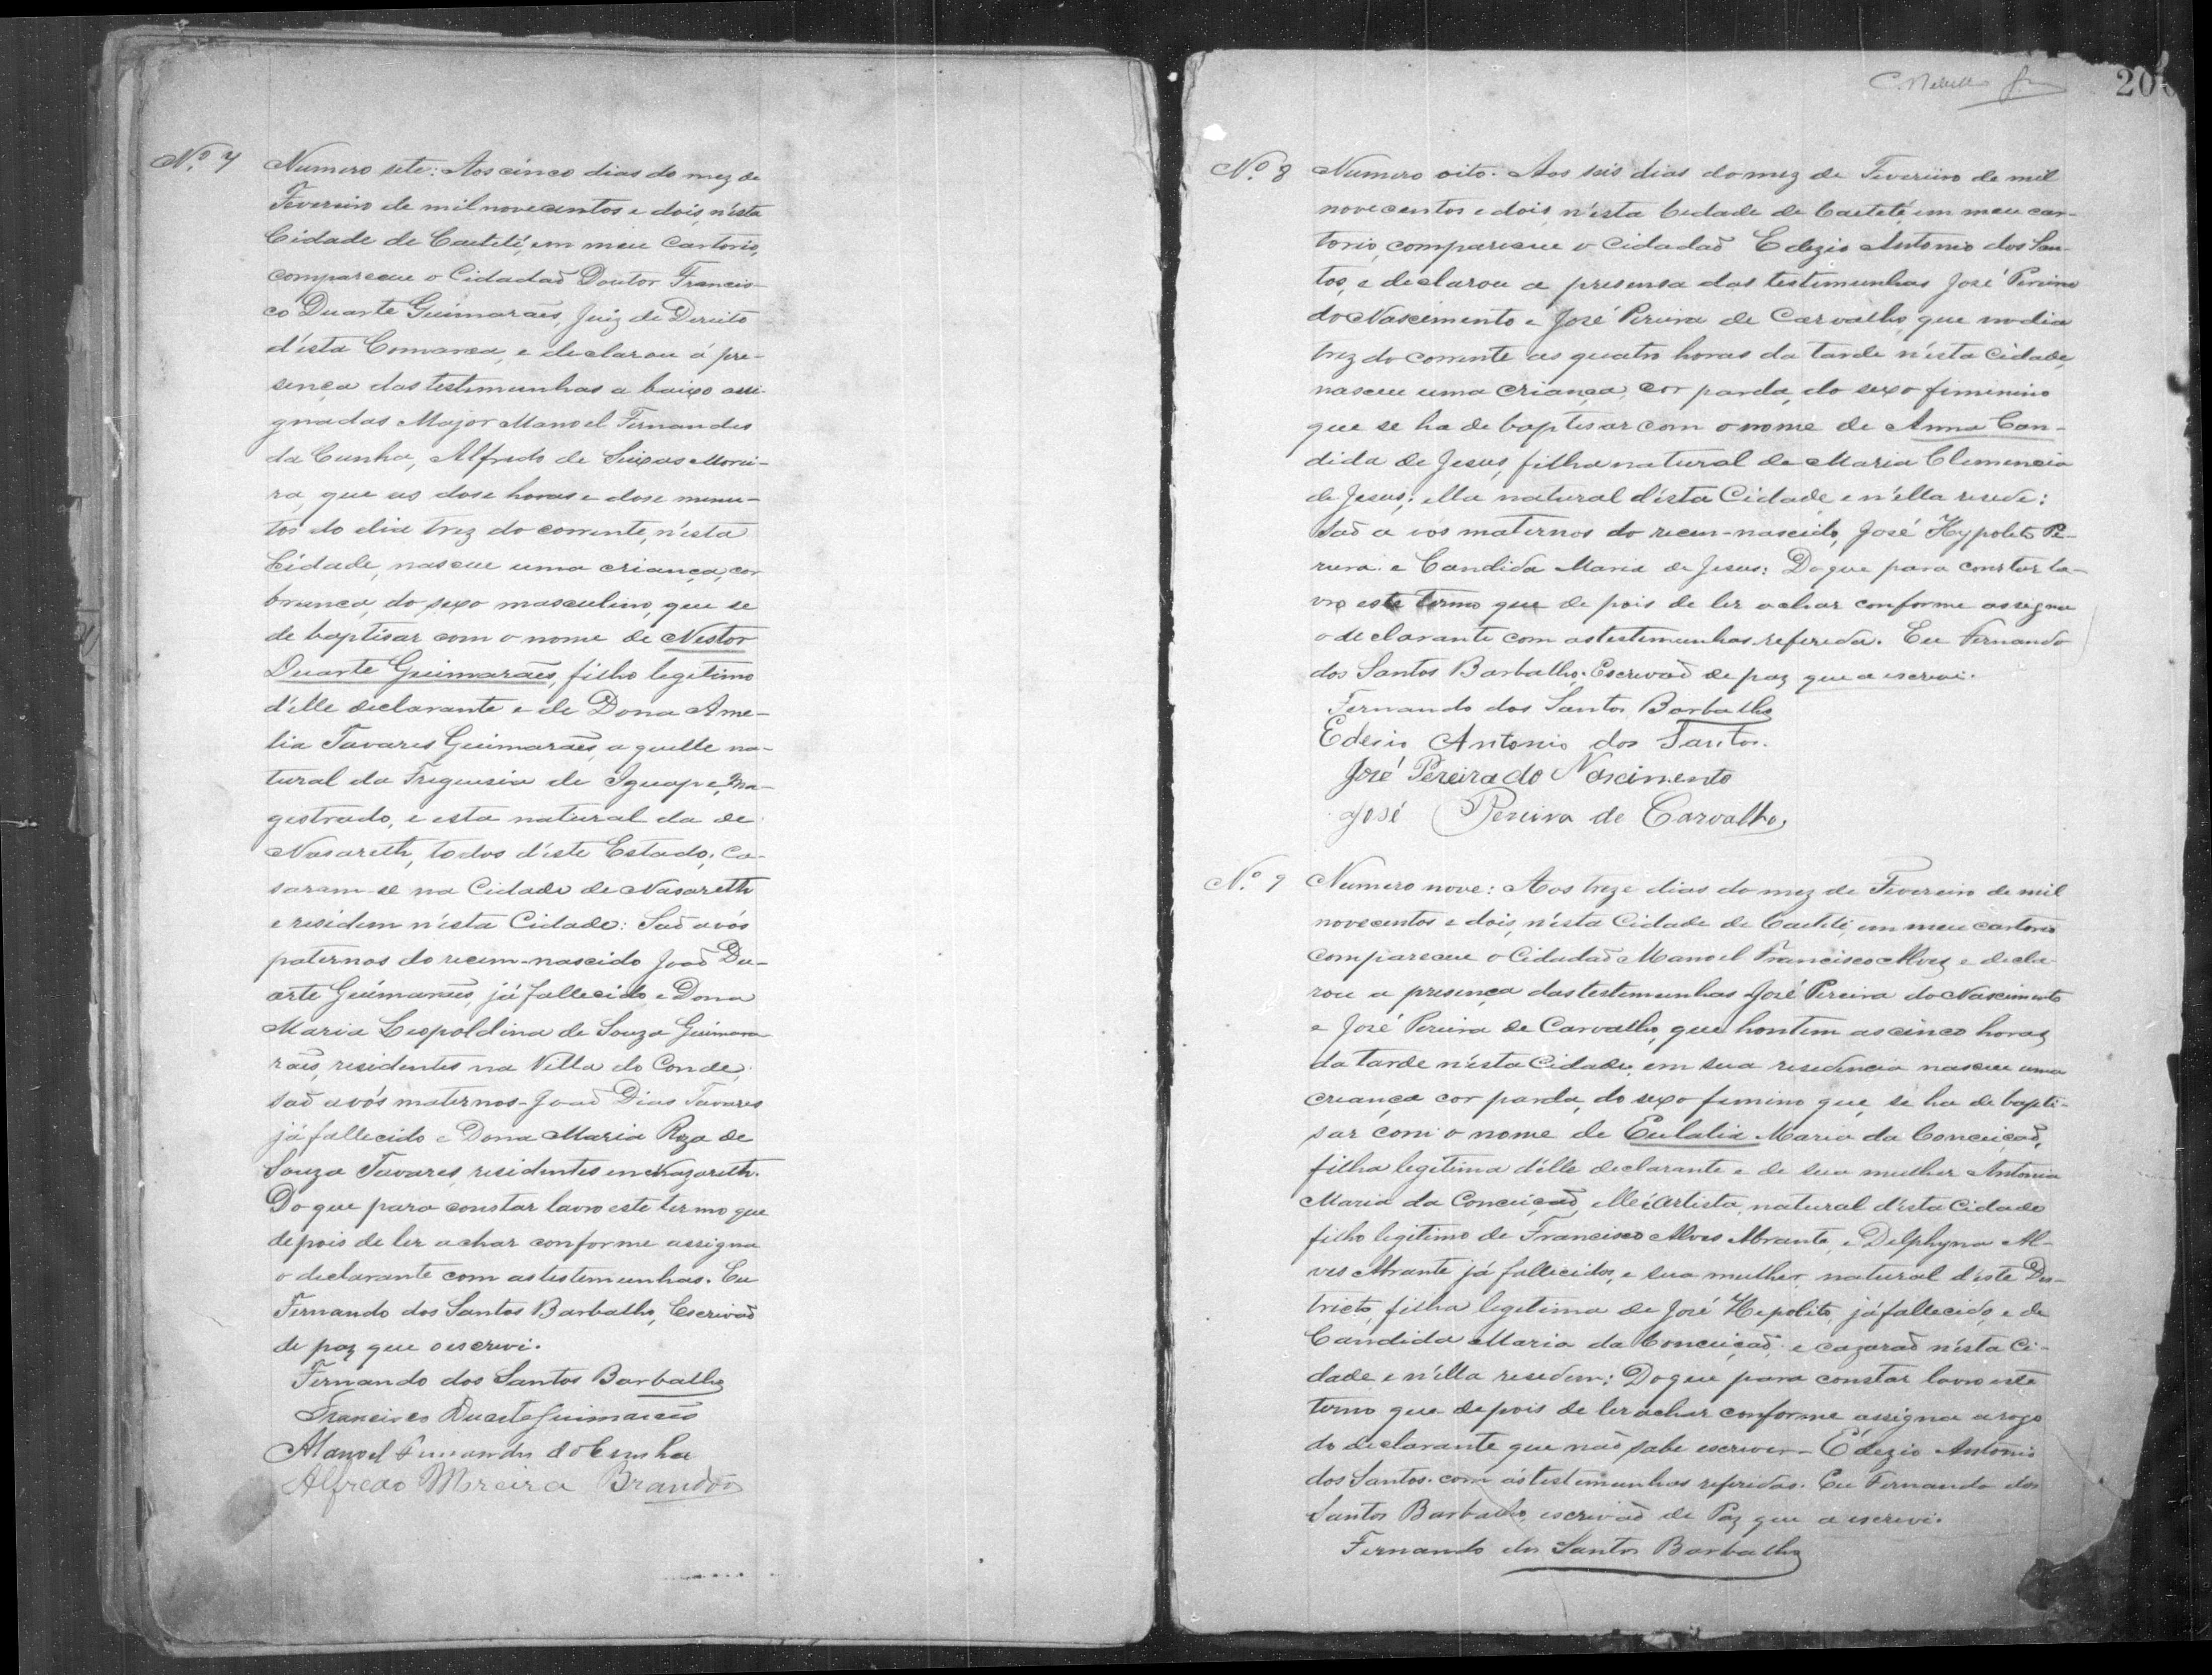 Nº 7 Numero sete: Aos cinco dias do mez de
Fevereiro de mil novecentos e dois, n'esta
Cidade de Caeteté, em meu Cartorio,
compareceu o Cidadaõ Doutor Francis-
co Duarte Guimarães, Juiz de Direito
d'esta Comarca, e declarou á pre-
sença das testemunhas a baixo assi-
gnadas Major Manoel Fernandes
da Cunha, Alfredo de Seixas Morei-
ra, que as dose horas e dose minu-
tos do dia trez do corrente, n'esta
Cidade, nasceu uma criança, cor
branca, do sexo masculino, que se
de baptisar com o nome de Nestor
Duarte Guimarães, filho legitimo
d'elle declarante e de Dona Ame-
lia Tavares Guimarães, aquelle na-
tural da Freguesia de Iguape, Ma-
gestrado, e esta natural da de
Nasareth, todos d'este Estado; Ca-
saram-se na Cidade de Nasareth
e residem n'esta Cidade: Saõ avós
paternos do recem-nascido Joaõ Du-
arte Guimarães, já fallecido e Dona
Maria Leopoldina de Souza Guimara
rães, residentes na Villa do Conde;
saõ avós maternos-Joaõ Dias Tavares
já fallecido e Dona Maria Roza de
Souza Tavares, residentes em Nazareth.
Do que para constar lavro este termo que
depois de ler achar conforme assigna
o declarante com as testemunhas. Eu
Fernando dos Santos Barbalho, Escrivaõ
de paz que o escrevi.
Fernando dos Santos Barbalho
Francisco Duarte Guimarães
Manoel Fernandes da Cunha
Alfredo Moreira Brandão
206
Nº 8 Numero oito. Aos seis dias do mez de Fevereiro de mil
novecentos e dois, n'esta Cedade de Caeteté, em meu car-
torio, compareceu o Cidadaõ Edezio Antonio dos San-
tos, e declarou a presensa das testemunhas José Pereira
do Nascimento e José Pereira de Carvalho, que no dia
trez do corrente as quatro horas da tarde n'esta Cidade,
nasceu uma criança, cor parda, do sexo femenino
que se ha de baptisar com o nome de Anna Can-
dida de Jesus, filha natural de Maria Clemencia
de Jesus; ella natural d'esta Cidade e n'ella resede:
Saõ a vos maternos do recem-nascido, José Hypolito Pe-
reira e Candida Maria de Jesus: Do que para constar la-
vro este termo que de pois de ler achar conforme assigna
o declarante com as testemunhas referida. Eu Fernando
dos Santos Barbalho. Escrivaõ de paz que a escrevi.
Fernando dos Santos Barbalho
Edesio Antonio dos Santos.
José Pereira do Nascimento
José Pereira de Carvalho,
Nº 9 Numero nove: Aos treze dias do mez de Fevereiro de mil
novecentos e dois, n'esta Cidade de Caeteté, em meu cartorio
compareceu o Cidadaõ Manoel Francisco Alves, e decla-
rou a presença das testemunhas José Pereira do Nascimento
e José Pereira de Carvalho, que hontem as cinco horas
da tarde n'esta Cidade, em sua resedencia nasceu uma
creança cor parda, do sexo femino que se ha de bapti-
sar com o nome de Eulalia Maria da Conceiçaõ,
filha legitima d'elle declarante e de sua mulher Antonia
Maria da Conceiçaõ, elle é artista, natural d'esta Cidade
filho legitimo de Francisco Alves Abrante, e Delphyna Al-
ves Abrante já fallecidos, e sua mulher, natural d'este Dis-
tricto, filha legetima de José Hepolito, já fallecido, e de
Candida Maria da Conceiçaõ; e cazaraõ n'esta Ci-
dade e n'ella resedem: Do que para constar lavro este
termo que depois de ler achar conforme assigna a rogo
do declarante que não sabe escrever - Edezio Antonio
dos Santos. com as testemunhas referidas. Eu Fernando dos
Santos Barbalho, escrivaõ de Paz que a escrevi.
Fernando dos Santos Barbalho